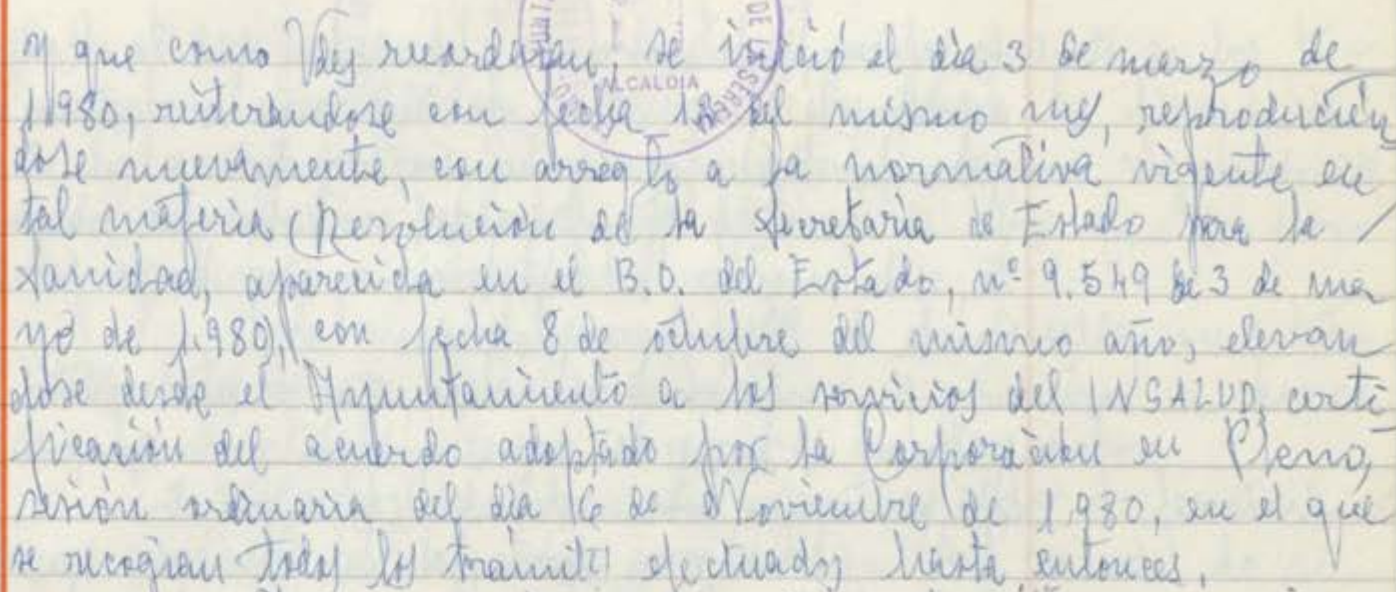 y que como Vdes recordaran, se inició el día 3 de marzo de
1.980, reiterandose con fecha 12 del mismo mes, reproducién
dose nuevamente, con arreglo a la normativa vigente en
tal materia (Resolución de la Secretaría de Estado para la /
Sanidad, aparecida en el B.O. del Estado, nº 9.549 de 3 de ma
yo de 1.980), con fecha 8 de octubre del mismo año, elevan
dose desde el Ayuntamiento a los servicios del INSALUD, certi
ficación del acuerdo adoptado por la Corporación en Pleno,
sesión ordinaria del día 6 de Noviembre de 1.980, en el que
se recogian todos los tramites efectuados hasta entonces.
ALCALDIA
DE LA SERENA